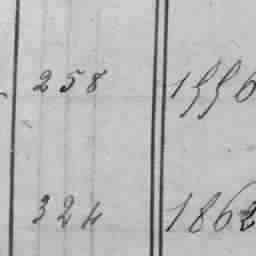 258 1556
324 1862